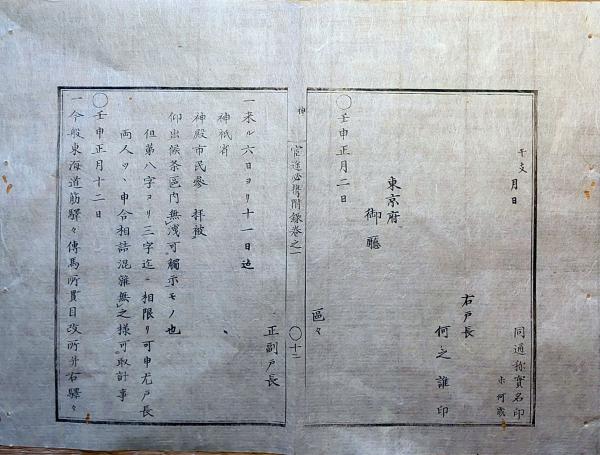 同通称實名印
干支
月日
右戸長
何之誰印
東京府
御廳
〇壬申正月二日
區々
正副戸長
一来ル六日ヨリ十一日迠
神祇省
神殿市民參拝被
仰出候条區内無洩可觸示モノ也
但第八字ヨリ三字迠ニ相限リ可申尤戸長
両人ツヽ申合相詰混雑無之様可取計事
〇壬申正月十二日
一今般東海道筋驛々傳馬所貫目改所并右驛々